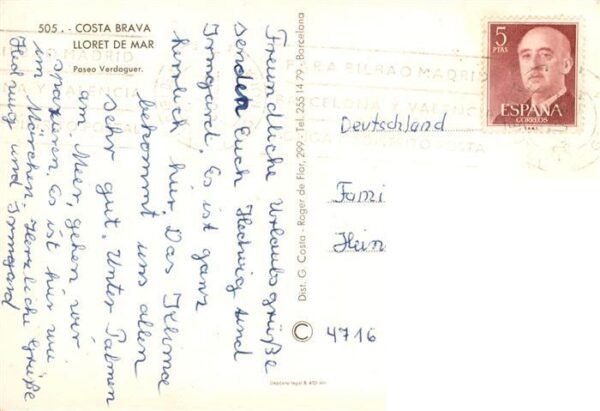 505. - COSTA BRAVA
LLORET DE MAR
Paseo Verdaguer.
Freundliche Urlaubsgrüße
senden Euch Hedwig und
Irmgard. Es ist ganz
herrlich hier. Das Klima
bekommt uns allen
sehr gut. Unter Palmen
am Meer, gehen wir
spazieren. Es ist hier wie
im Märchen. Herzliche Grüße
Hedwig und Irmgard
Dist. G. Costa - Roger de Flor, 299 - Tel. 255 14 79 - Barcelona
5
PTAS
ESPAÑA
CORREOS
PARA BILBAO MADRID
BARCELONA Y VALENCIA
POSTAL
Deutschland
Fami
Hein
4716